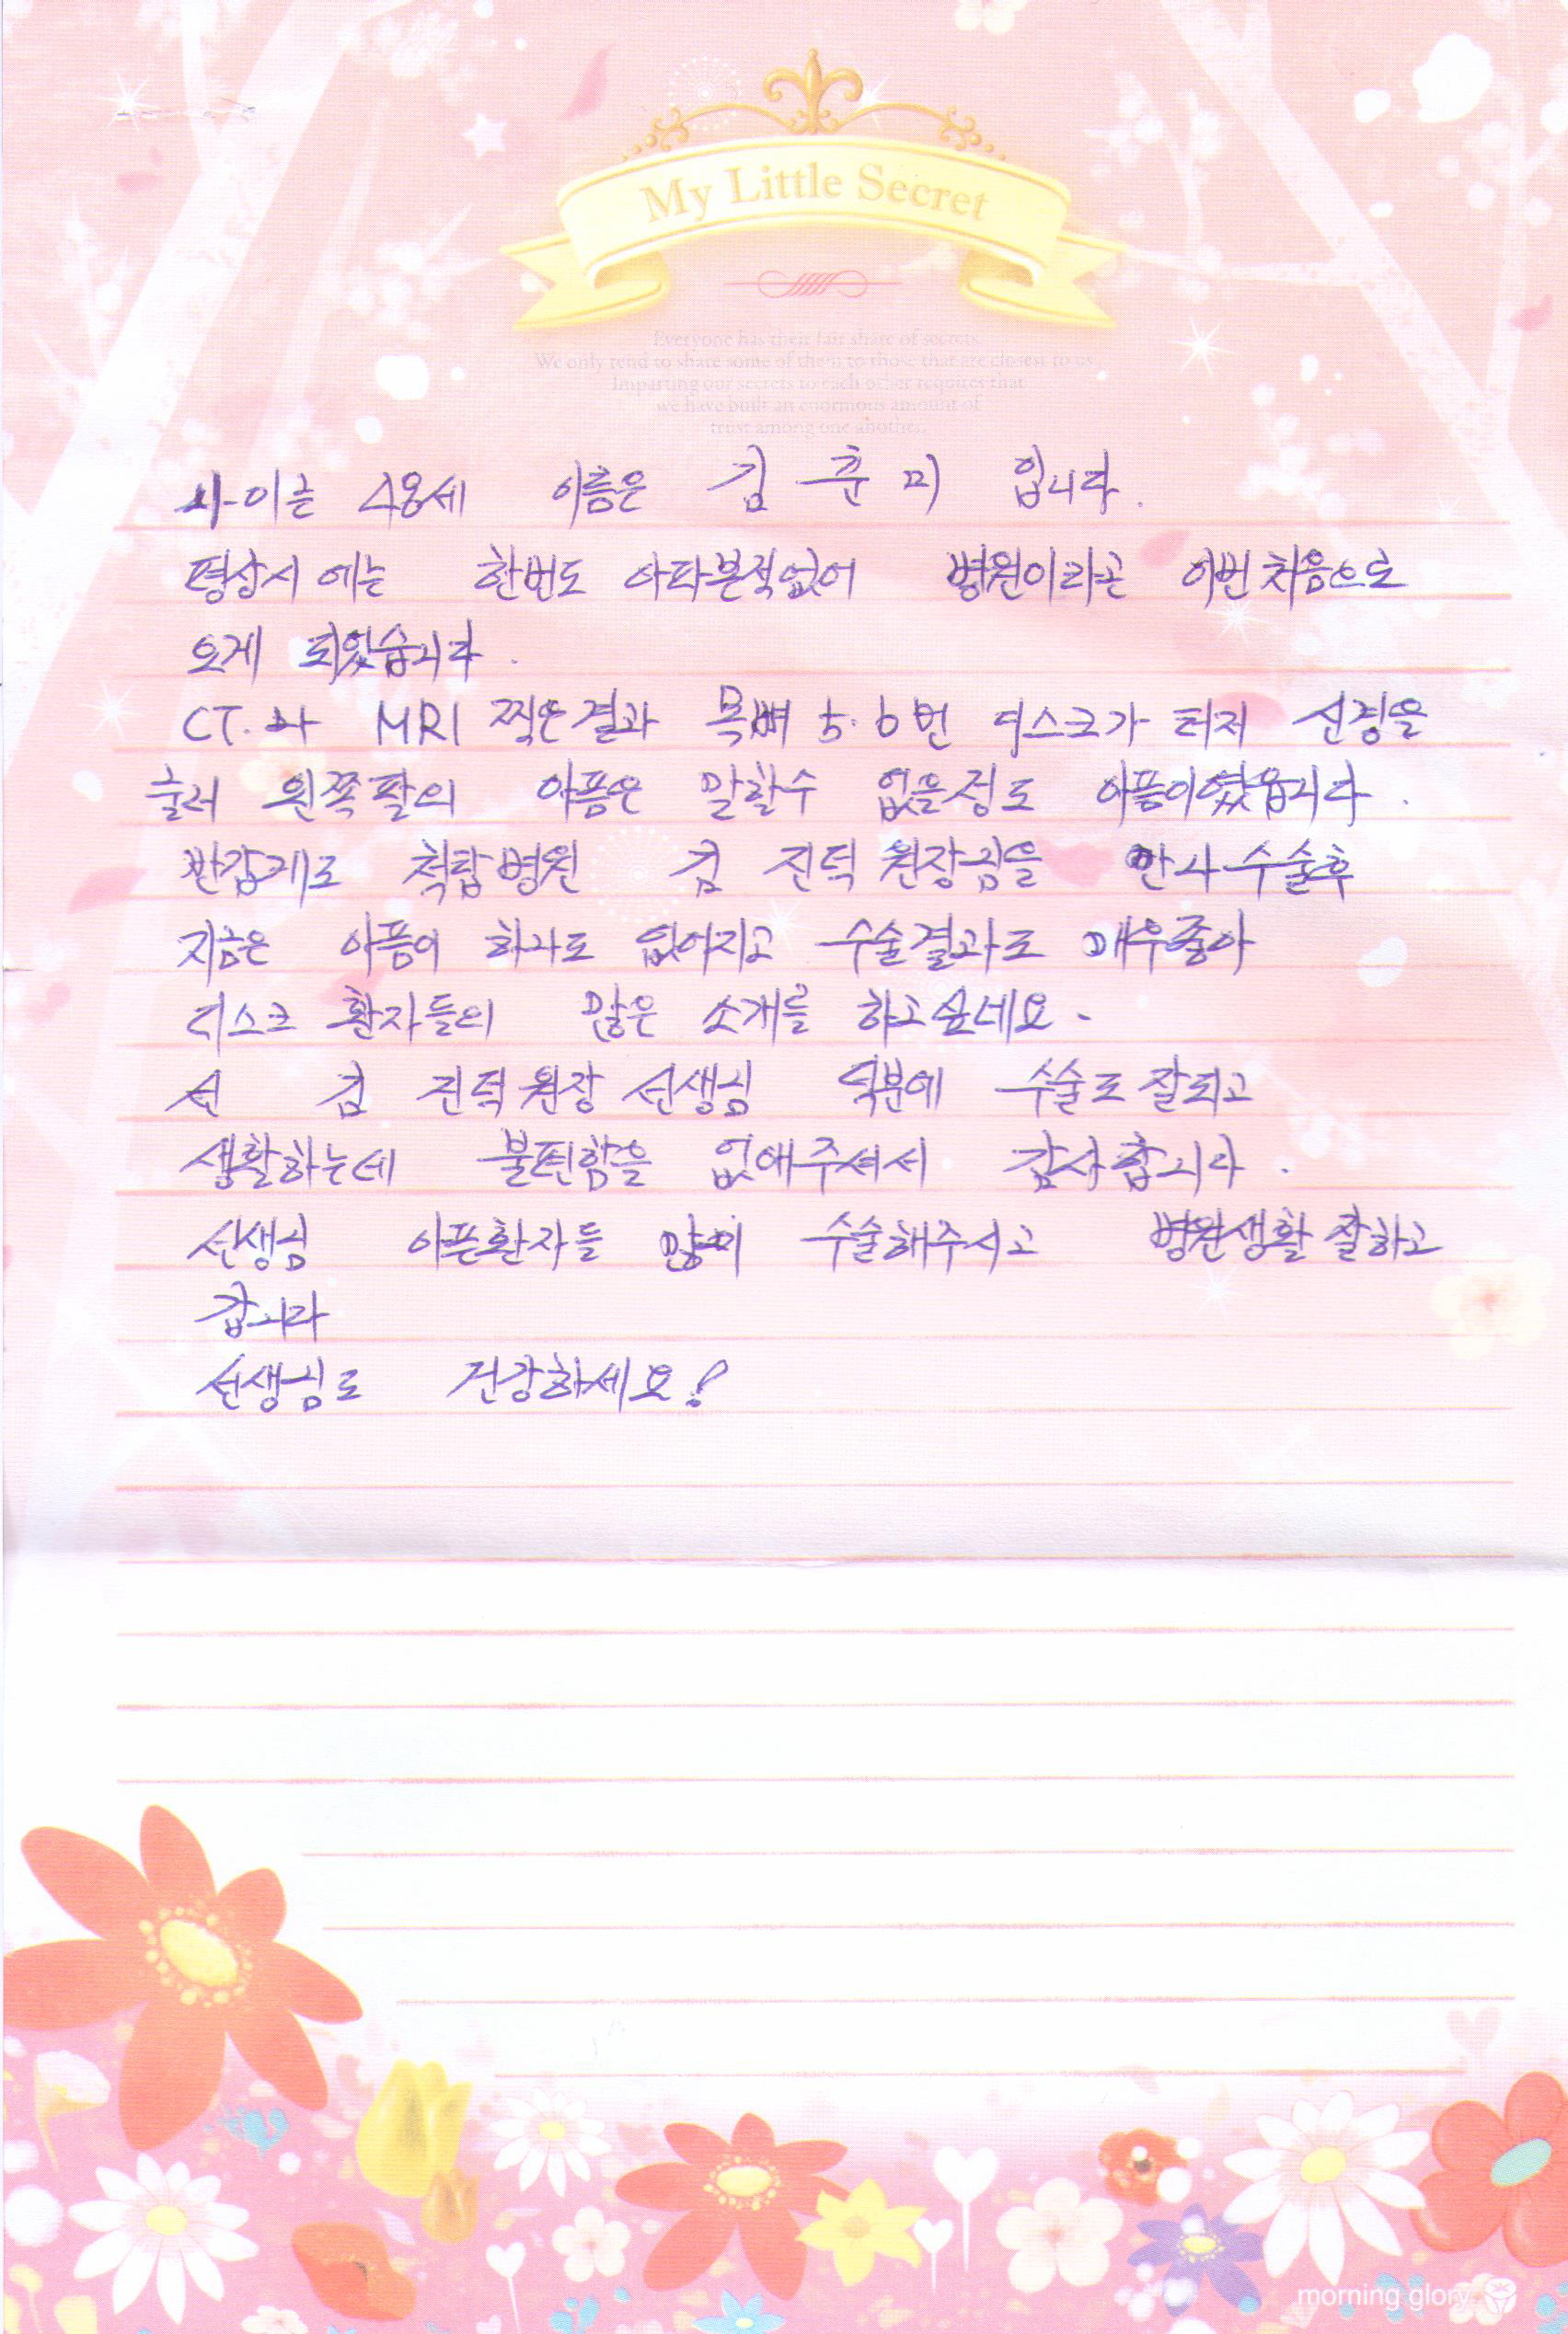 My Little Secret
Everyone has their fair share of secrets.
We only tend to share some of them to those that are closest to us.
Imparting our secrets to each other requires that
we have built an enormous amount of
trust among one another.
나이는 48세 이름은 김 춘 미 입니다.
평상시 에는 한번도 아파본적없어 병원이라곤 이번처음으로
오게 되었습니다.
CT.와 MRI 찍은결과 목뼈 5.6번 디스크가 터저 신경을
눌러 왼쪽팔의 아픔은 말할수 없을정도 아픔이였읍니다.
반갑게도 척탑병원 김 진덕 원장님을 만나수술후
지금은 아픔이 하나도 없어지고 수술결과도 매우좋아
디스크 환자들의 많은 소개를 하고싶네요.
전 김 진덕원장 선생님 덕분에 수술도잘되고
생활하는데 불편함을 없애주셔서 감사합니다.
선생님 아픈환자들 많이 수술해주시고 병원생활잘하고
갑니다
선생님도 건강하세요!
morning glory